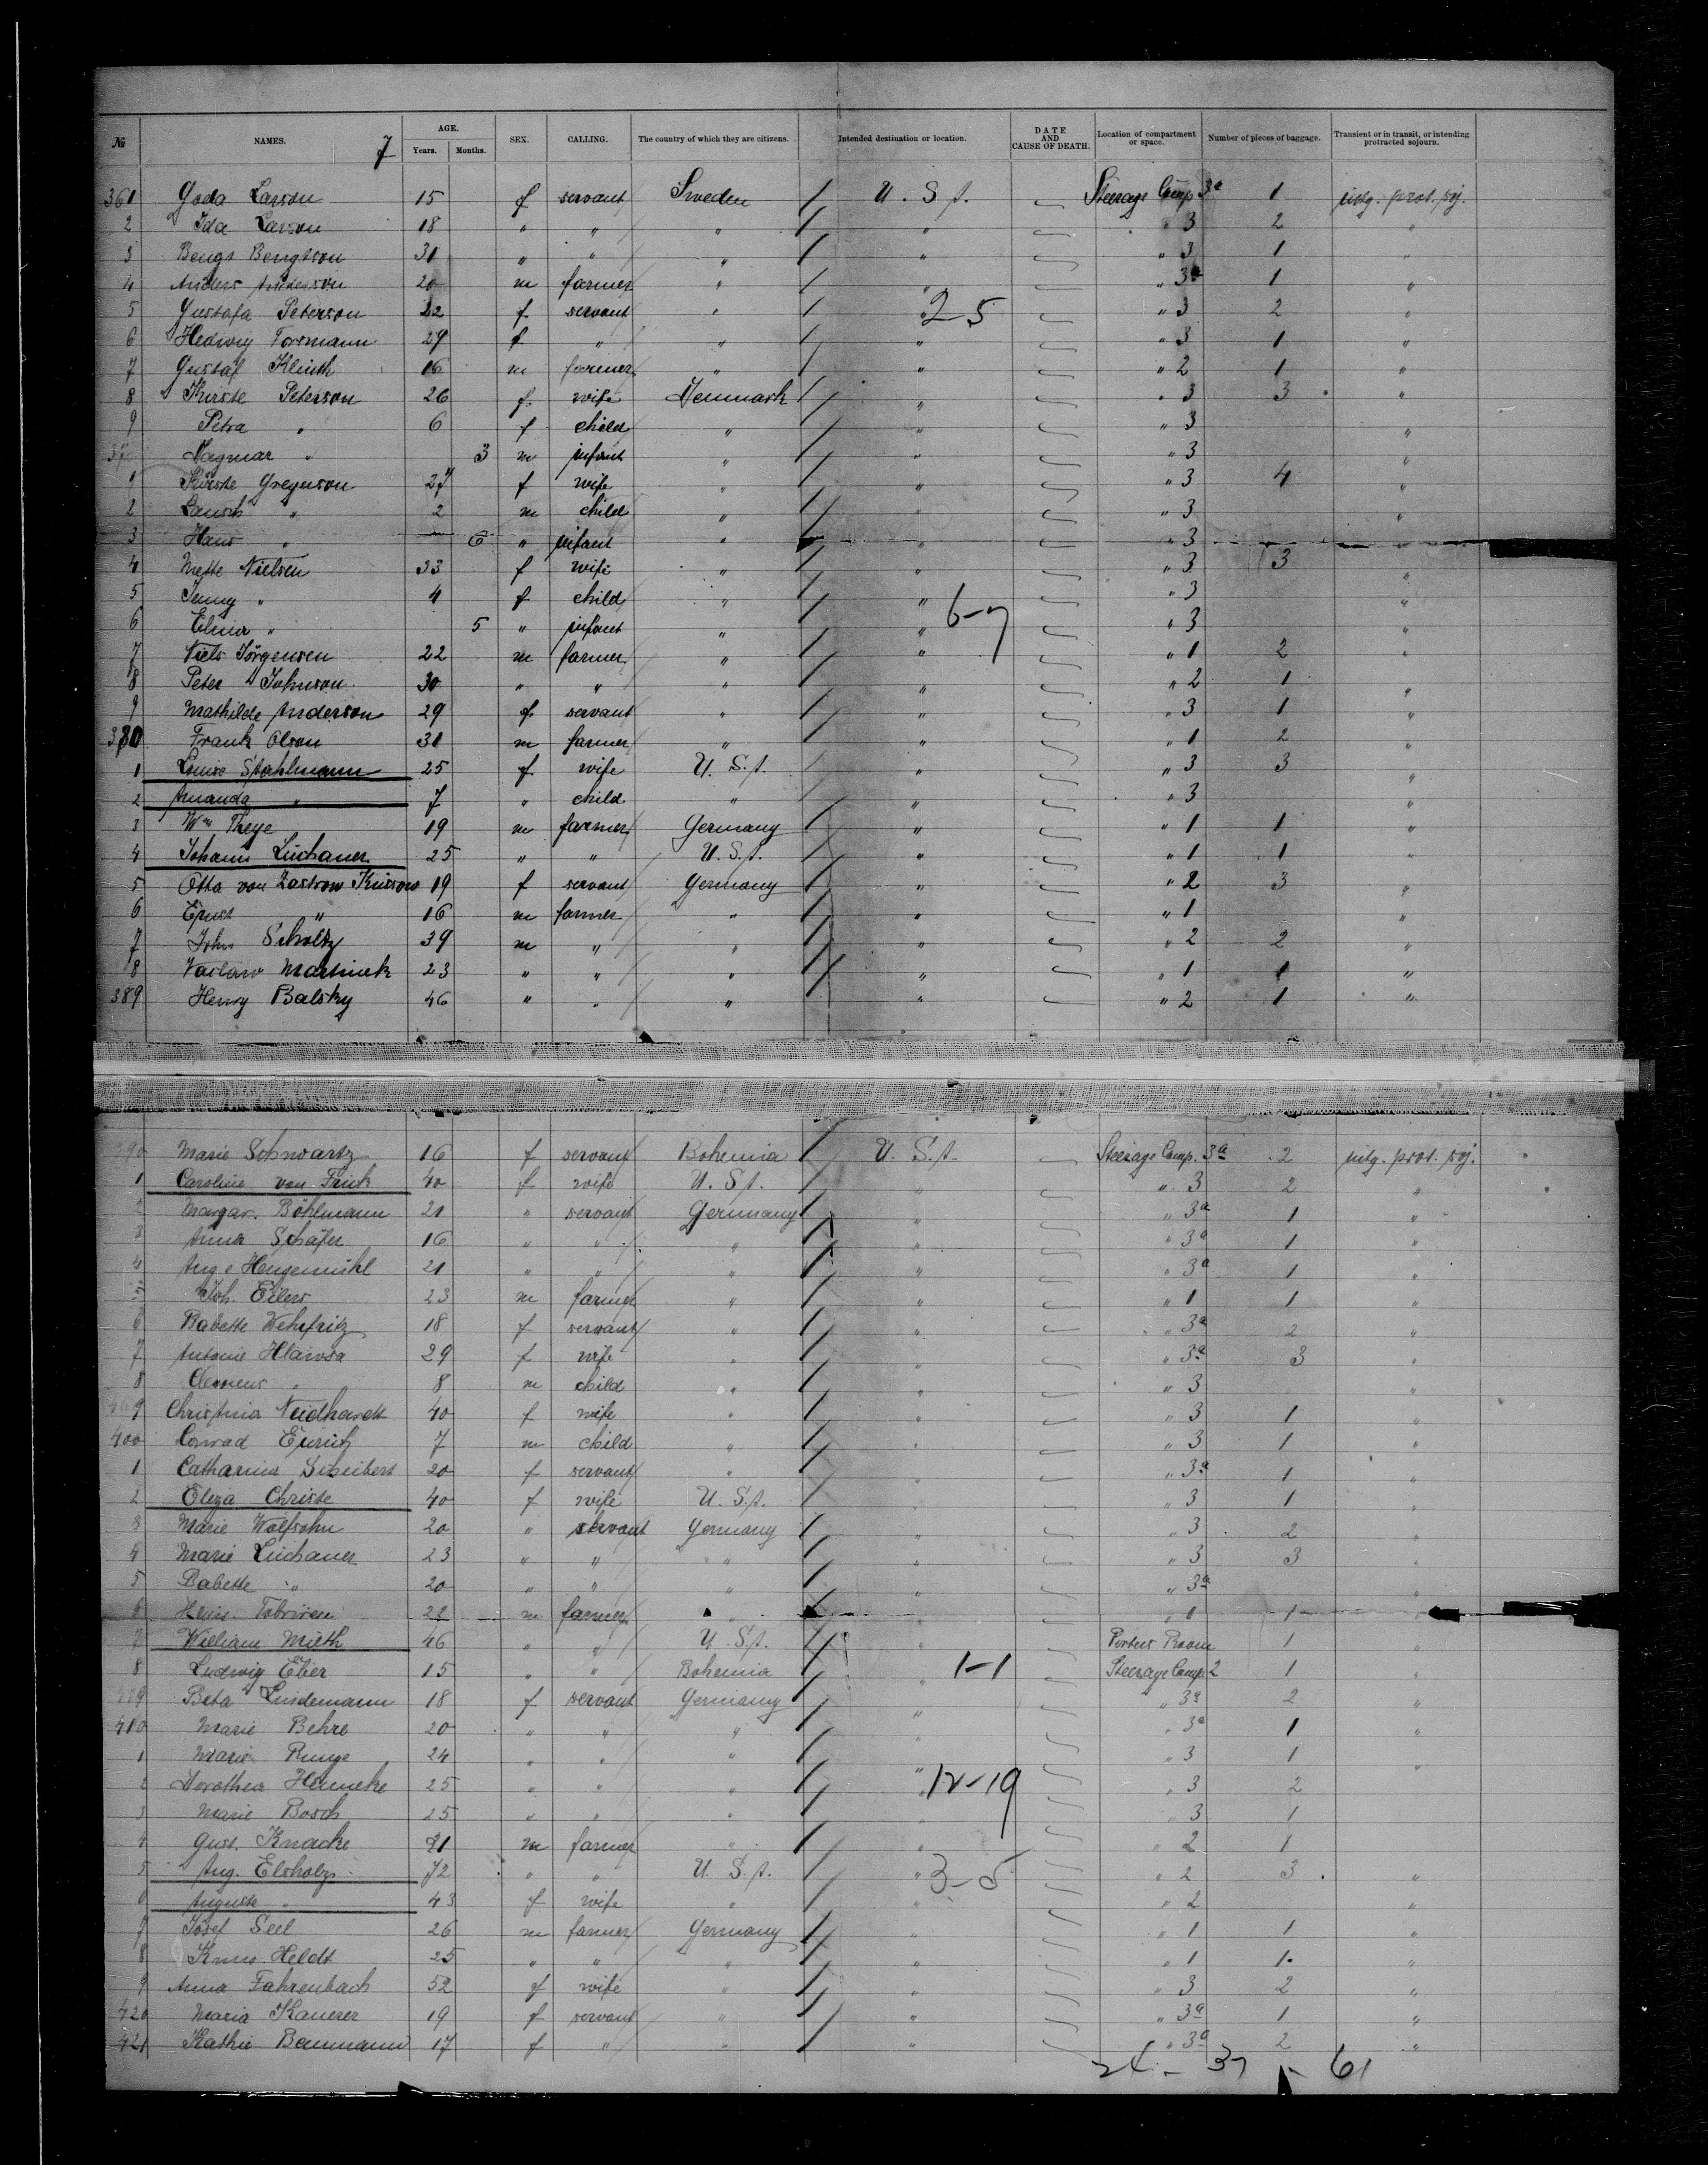 № NAMES. 7 AGE. Years. Months. SEX. CALLING. The country of which they are citizens. Intended destination or location. DATE AND CAUSE OF DEATH. Location of compartment or space. Number of pieces of baggage. Transient or in transit, or intending protracted sojourn.
361 Larson 15 f servant Sweden U. S. A. Steerage Comp. 3a 1 intg. prot. soj.
2 Ida Larson 18 " " " " " 3 2 "
3 Bengt Bengtson 31 " " " " " 3 1 "
4 Anders Anderson 20 m farmer " " " 3a 1 "
5 Gustafa Peterson 22 f servant " " 25 " 3 2 "
6 Hedwig Forsmann 29 f " " " " 3 1 "
7 Gustaf Klinth 16 m farmer " " " 2 1 "
8 Kirste Peterson 26 f wife Denmark " " 3 3 "
9 Petra " 6 f child " " " 3 "
37 Dagmar " 3 m infant " " " 3 "
1 Kirste Gregerson 27 f wife " " " 3 4 "
2 " 2 m child " " " 3 "
3 Hans " 6 " infant " " " 3 "
4 Mette Nielsen 33 f wife " " " 3 3 "
5 Jenny " 4 f child " " " 3 "
6 " 5 " infant " " 6-7 " 3 "
7 Niels Jörgensen 22 m farmer " " " 1 2 "
8 Peter Johnson 30 " " " " " 2 1 "
9 Mathilde Anderson 29 f servant " " " 3 1 "
380 Frank Olson 31 m farmer " " " 1 2 "
1 Louise Stahlmann 25 f wife U. S. A. " " 3 3 "
2 Amanda " 7 " child " " " 3 "
3 Wm Theye 19 m farmer Germany " " 1 1 "
4 Johann Lüchauer 25 " " U. S. A. " " 1 1 "
5 Otta von Zastrow 19 f servant Germany " " 2 3 "
6 Ernst " 16 m farmer " " " 1 "
7 John Scholtz 39 m " " " " 2 2 "
8 Vaclaw Martinek 23 " " " " " 1 1 "
389 Henry Balsky 46 " " " " " 2 1 "
390 Marie Schwartz 16 f servant Bohemia U. S. A. Steerage Comp. 3a 2 intg. prot. soj.
1 Caroline von Frick 40 f wife U. S. A. " " 3 2 "
2 Margar. Böhlmann 21 " servant Germany " " 3a 1 "
3 Anna Schäfer 16 " " " " " 3a 1 "
4 Hengemühl 21 " " " " " 3a 1 "
5 Joh. Eilers 23 m farmer " " " 1 1 "
6 Babette Wehrfritz 18 f servant " " " 3a 2 "
7 Antonie Hlawsa 29 f wife " " " 3a 3 "
8 Clemens " 8 m child " " " 3 "
9 Christina Neidhardt 40 f wife " " " 3 1 "
400 Conrad 7 m child " " " 3 1 "
1 Catharina 20 f servant " " " 3a 1 "
2 Eliza Christe 40 f wife U. S. A. " " 3 1 "
3 Marie Wolfsohn 20 " servant Germany " " 3 2 "
4 Marie Lüchauer 23 " " " " " 3 3 "
5 Babette " 20 " " " " " 3a "
6 Heinr. 22 m farmer " " " 1 1 "
7 William Mieth 46 " " U. S. A. " Porter Room 1 "
8 Ludwig 15 " " Bohemia " 1-1 Steerage Comp. 2 1 "
9 Beta Lindemann 18 f servant Germany " " 3a 2 "
410 Marie Behre 20 " " " " " 3a 1 "
1 Marie Runge 24 " " " " " 3 1 "
2 Dorothea Henneke 25 " " " " 12-19 " 3 2
3 Marie Bosch 25 " " " " 3 1
4 Gust. Knacke 21 m farmer " " " 2 1
5 Aug. Elsholz 72 " " U. S. A. " 3-5 " 2 3 "
6 Auguste " 43 f wife " " " 2 "
7 Josef Seel 26 m farmer Germany " " 1 1 "
8 Heldt 25 " " " " " 1 1 "
9 Anna Fahrenbach 52 f wife " " " 3 2 "
420 Maria Kauerer 19 f servant " " " 3a 1 "
421 Kathie Baumann 17 f " " " " 3a 2 "
24 - 37 - 61